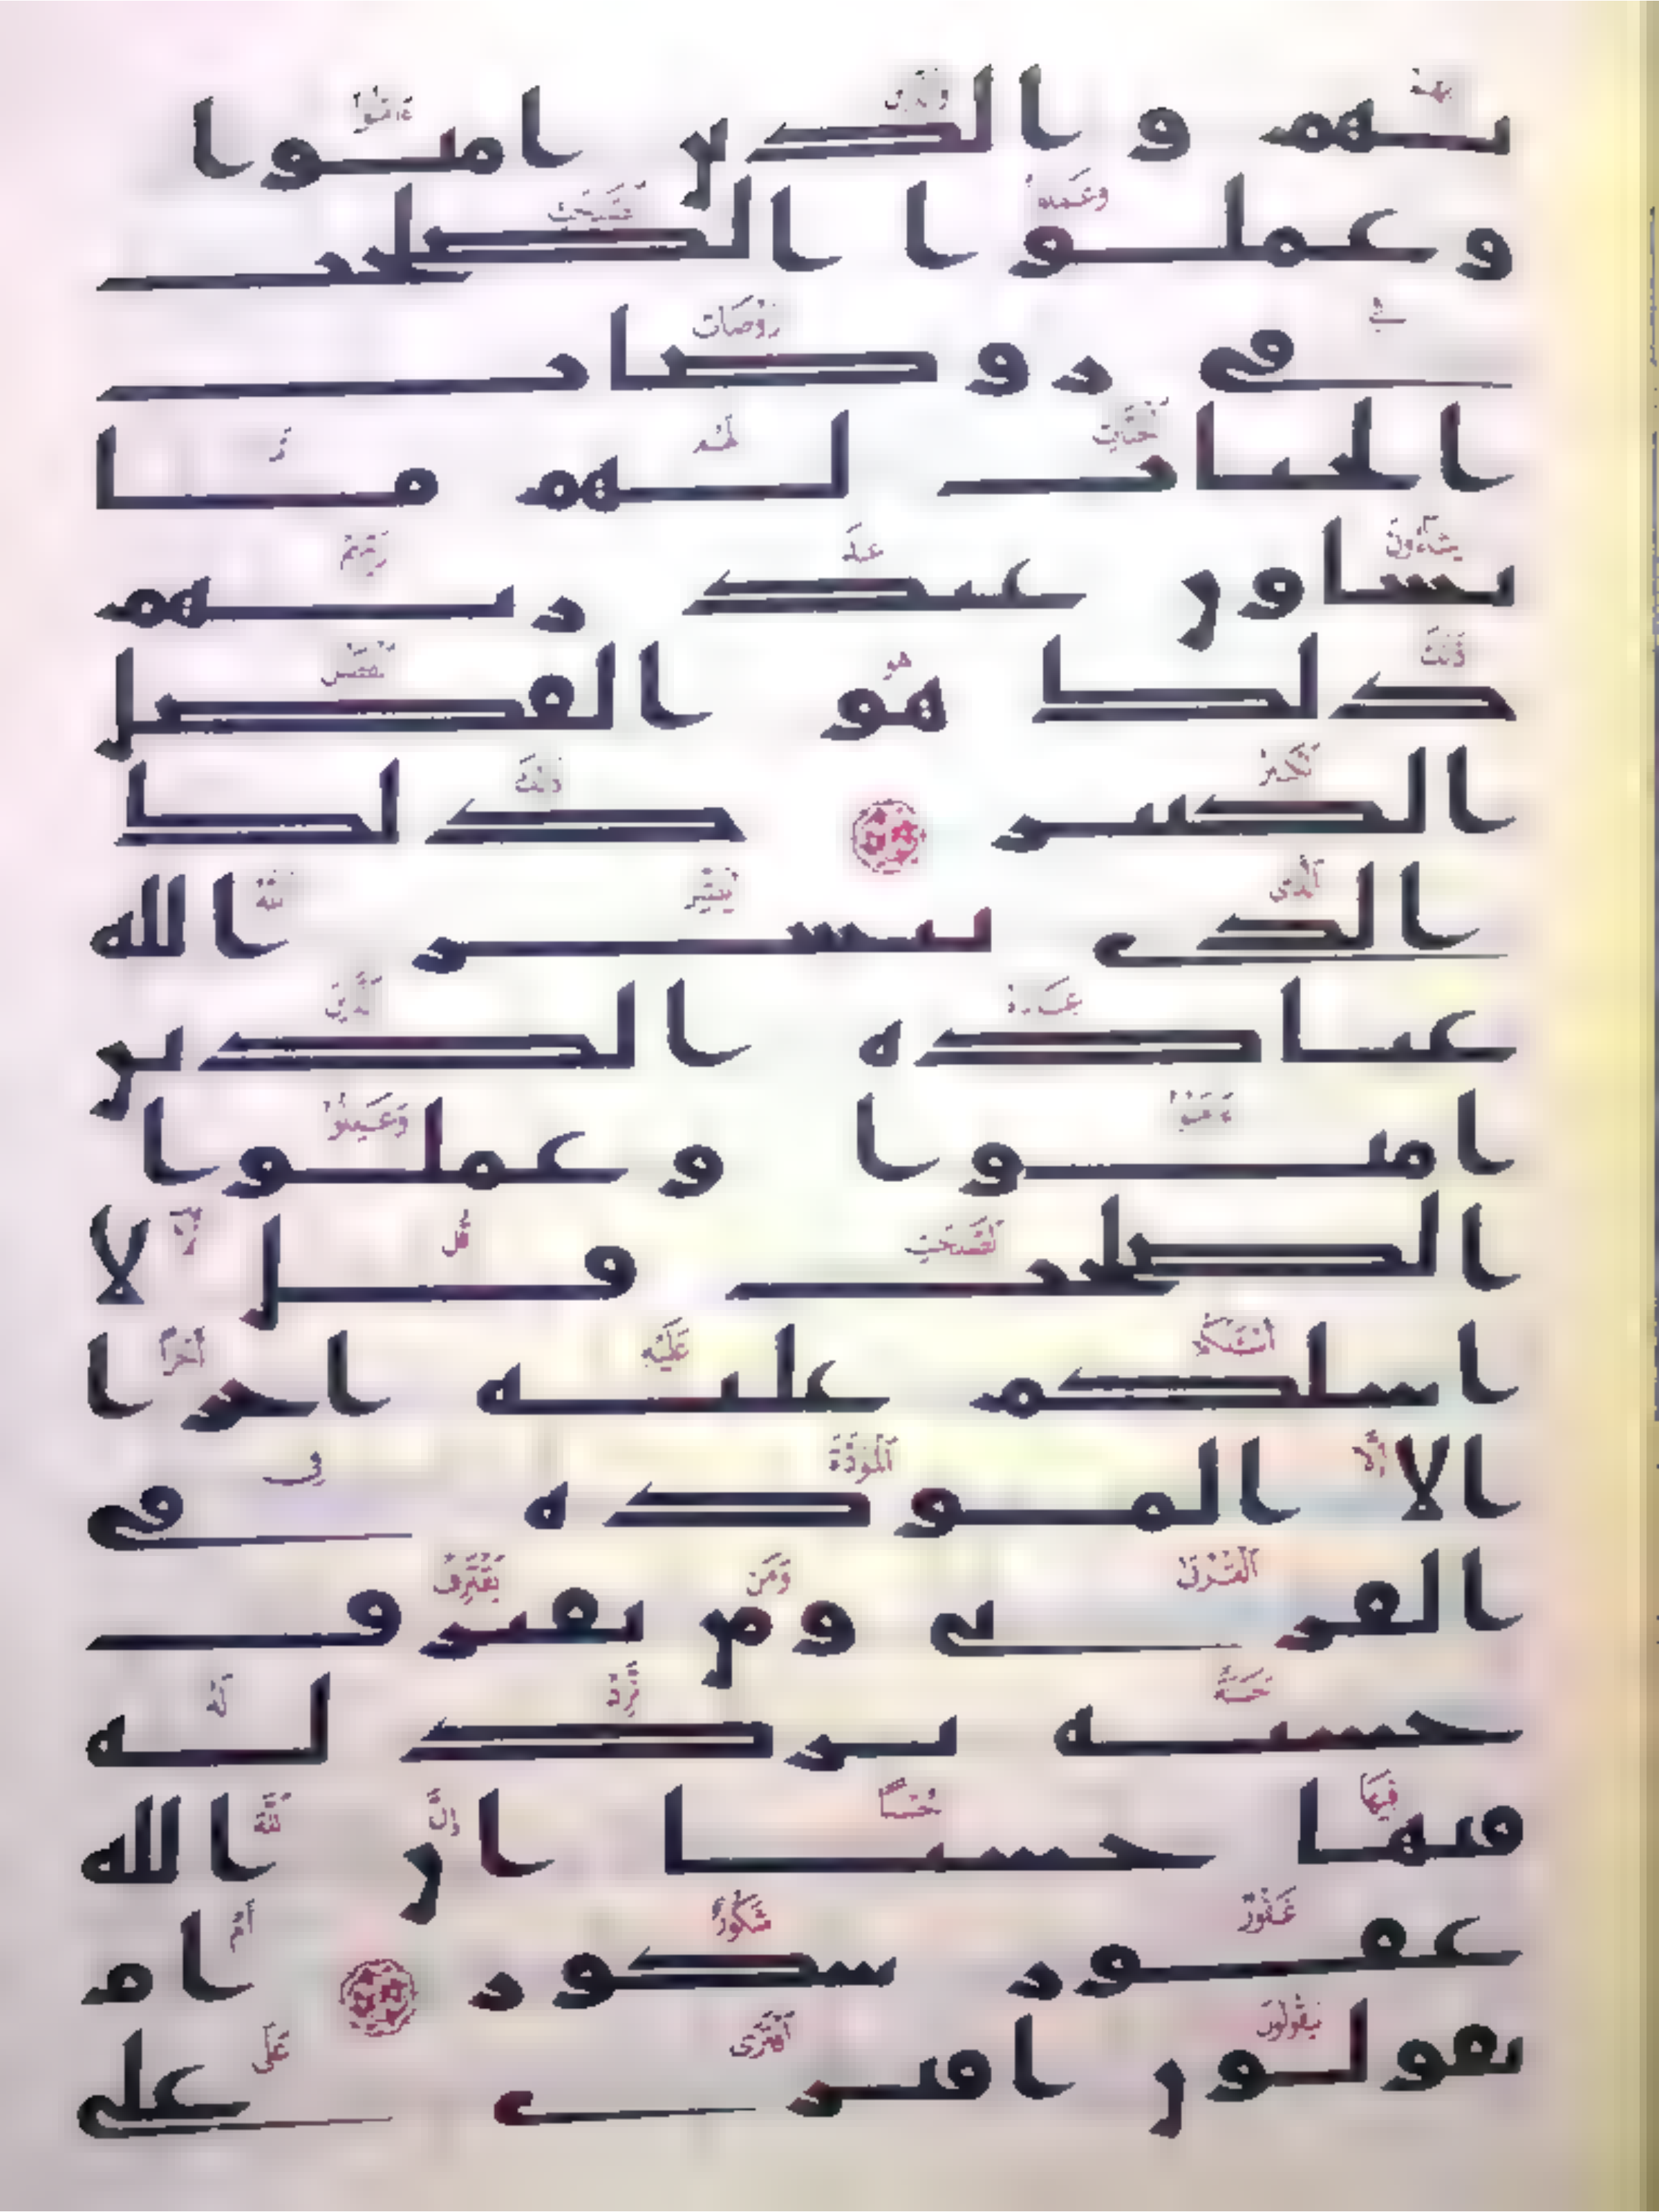 بهم والذين امنوا
وعملوا الصلحت
في روضات
الجنات لهم ما
يشاون عند ربهم
ذلك هو الفضل
الكبير ذلك
الذي يبشر الله
عباده الذين
امنوا وعملوا
الصلحت قل لا
اسلكم عليه اجرا
الا الموده في
القربى ومن يقترف
حسنه نزد له
فيها حسنا ان الله
غفور شكور ام
يقولون افترى على